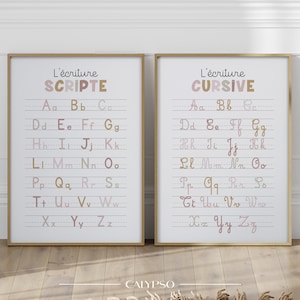 L'écriture
SCRIPTE
Aa Bb Cc
Dd Ee Ff Gg
Hh Ii Jj Kk
Ll Mm Nn Oo
Pp Qq Rr Ss
Tt Uu Vv Ww
Xx Yy Zz
L'écriture
CURSIVE
Aa Bb Cc
Dd Ee Ff Gg
Hh Ii Jj Kk
Ll Mm Nn Oo
Pp Qq Rr Ss
Tt Uu Vv Ww
Xx Yy Zz
CALYPSO